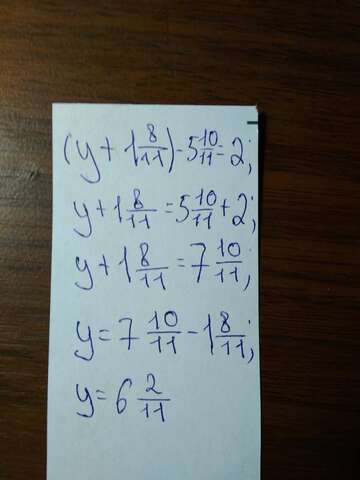 (y + 1 8/11) - 5 10/11 = 2;
y + 1 8/11 = 5 10/11 + 2;
y + 1 8/11 = 7 10/11;
y = 7 10/11 - 1 8/11;
y = 6 2/11